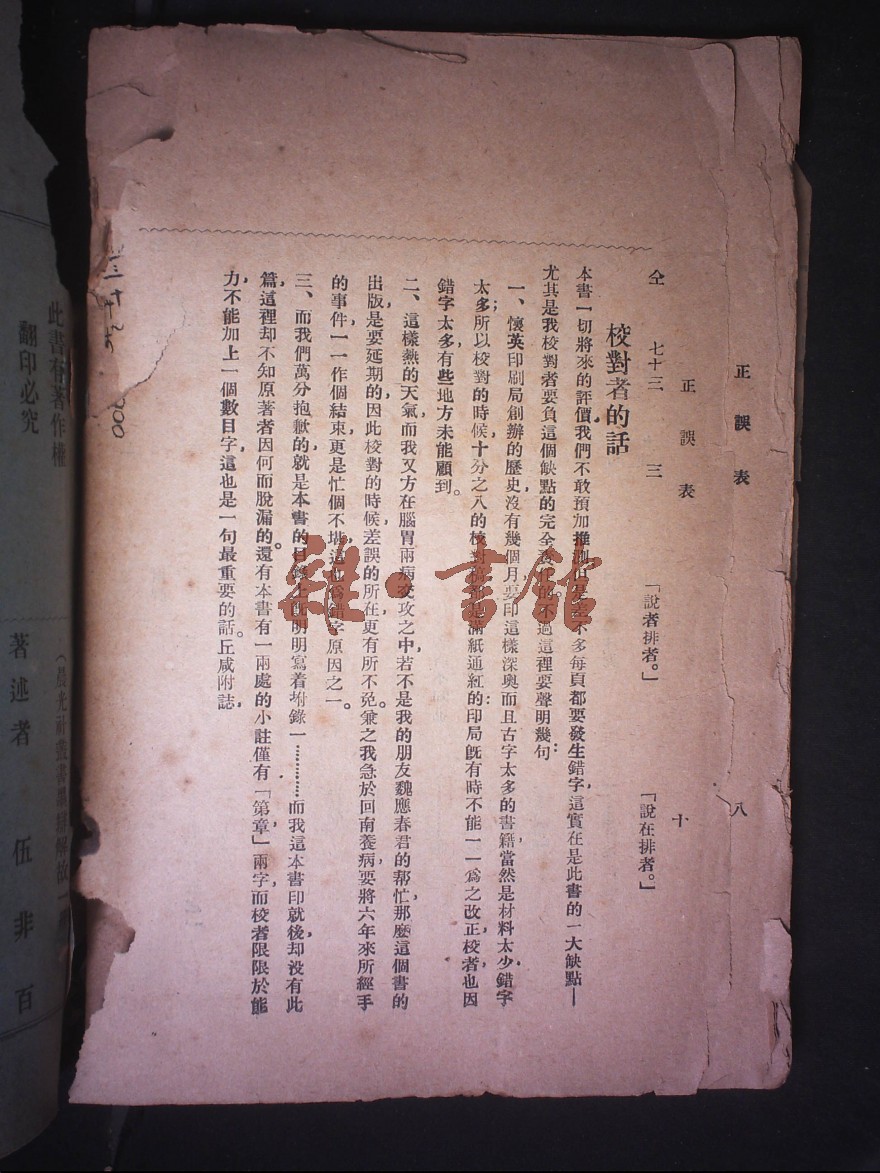 正誤表
八
正誤表
十
仝 七十三 三 「說者排者。」 「說在排者。」
校對者的話
本書一切將來的評價，我們不敢預加推測但是差不多每頁都要發生錯字，這實在是此書的一大缺點—
尤其是我校對者要負這個缺點的完全責任的不過這裡要聲明幾句：
一、懷英印刷局創辦的歷史沒有幾個月，要印這樣深奧而且古字太多的書籍，當然是材料太少，錯字
太多；所以校對的時候，十分之八的校對稿都是滿紙通紅的；印局旣有時不能一一爲之改正，校者也因
錯字太多，有些地方未能顧到。
二、這樣熱的天氣，而我又方在腦胃兩病交攻之中，若不是我的朋友魏應春君的帮忙，那麽這個書的
出版，是要延期的，因此校對的時候，差誤的所在，更有所不免。兼之我急於回南養病，要將六年來所經手
的事件，一一作個結束，更是忙個不堪，這也爲錯字原因之一。
三、而我們萬分抱歉的，就是本書的目錄上面明明寫着坿錄一…………而我這本書印就後，却没有此
篇，這裡却不知原著者因何而脫漏的。還有本書有一兩處的小註，僅有「第章」兩字，而校者限限於能
力不能加上一個數目字，這也是一句最重要的話。丘咸附誌，
此書有著作權
翻印必究
著述者 伍非百
雜·書館